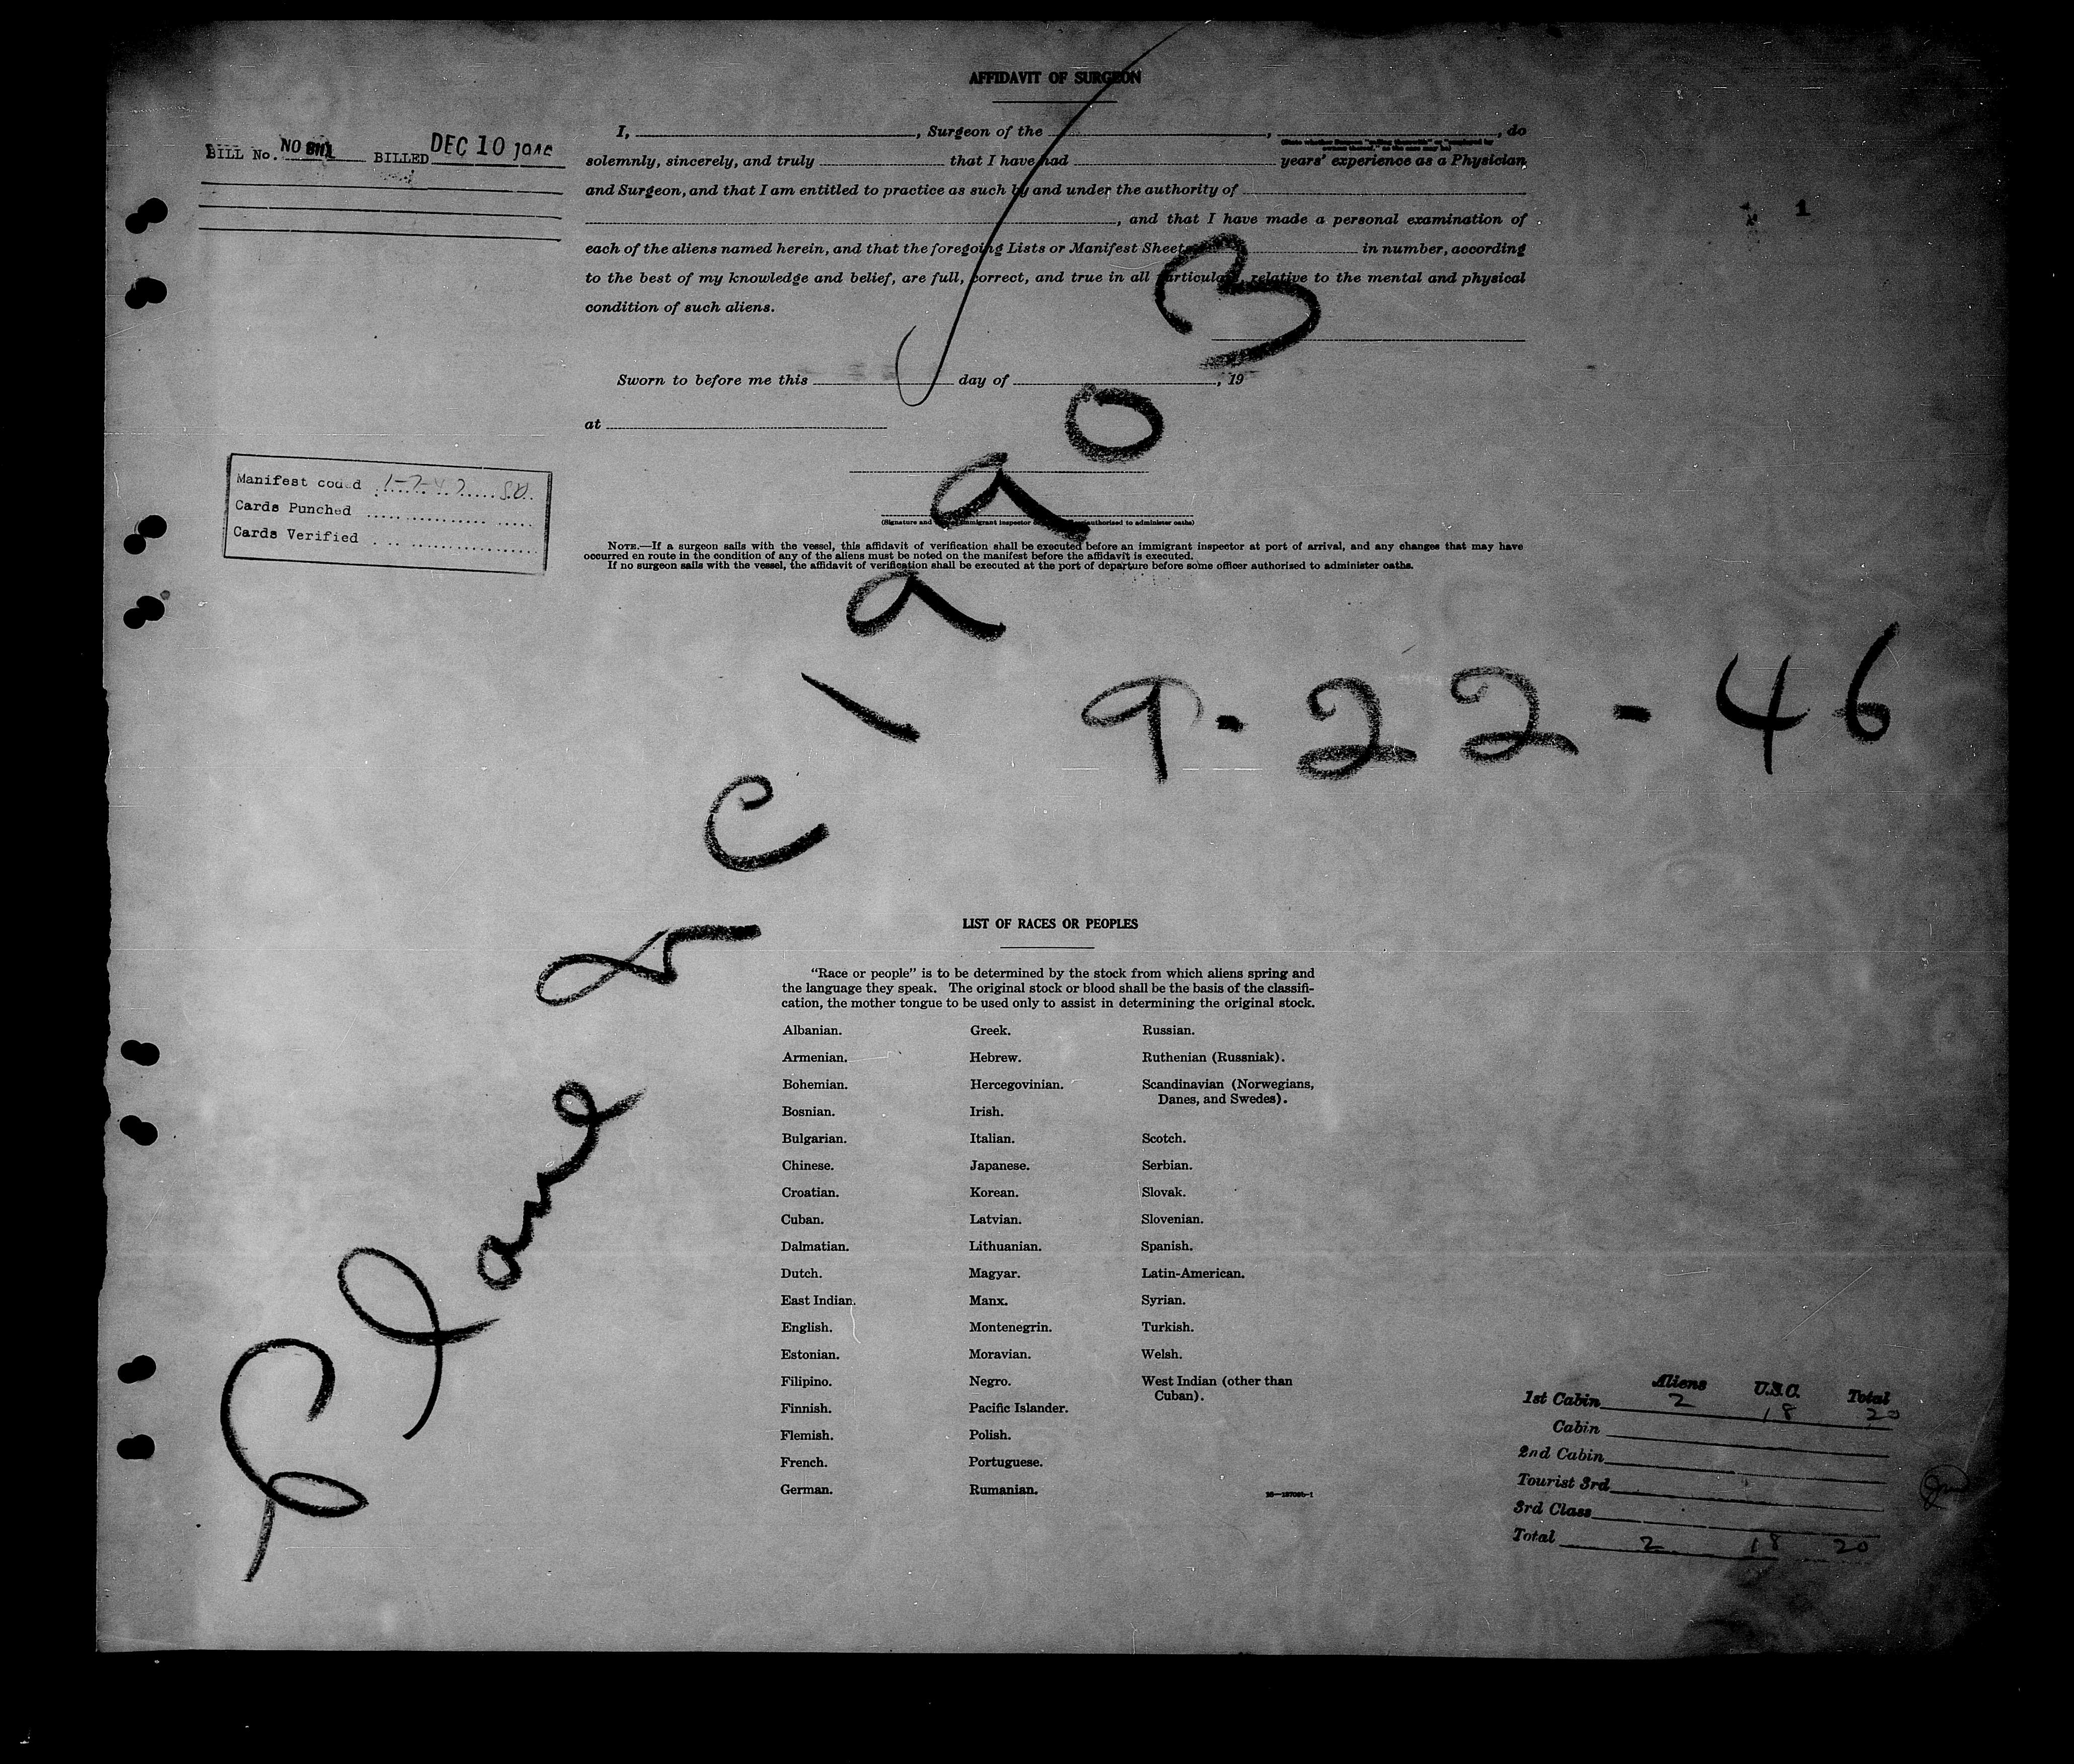 AFFIDAVIT OF SURGEON
BILL No. NO BILL BILLED DEC 10 1946
I, , Surgeon of the , , do
solemnly, sincerely, and truly that I have had years' experience as a Physician
and Surgeon, and that I am entitled to practice as such by and under the authority of
, and that I have made a personal examination of
each of the aliens named herein, and that the foregoing Lists or Manifest Sheets, in number, according
to the best of my knowledge and belief, are full, correct, and true in all particulars, relative to the mental and physical
condition of such aliens.
1
Sworn to before me this day of , 19
at
Manifest coded 1-7-47
Cards Punched
Cards Verified
(Signature and immigrant inspector authorized to administer oaths)
NOTE.—If a surgeon sails with the vessel, this affidavit of verification shall be executed before an immigrant inspector at port of arrival, and any changes that may have
occurred en route in the condition of any of the aliens must be noted on the manifest before the affidavit is executed.
If no surgeon sails with the vessel, the affidavit of verification shall be executed at the port of departure before some officer authorized to administer oaths.
Plane
03
9-22-46
LIST OF RACES OR PEOPLES
"Race or people" is to be determined by the stock from which aliens spring and
the language they speak. The original stock or blood shall be the basis of the classifi-
cation, the mother tongue to be used only to assist in determining the original stock.
Albanian.
Armenian.
Bohemian.
Bosnian.
Bulgarian.
Chinese.
Croatian.
Cuban.
Dalmatian.
Dutch.
East Indian.
English.
Estonian.
Filipino.
Finnish.
Flemish.
French.
German.
Greek.
Hebrew.
Hercegovinian.
Irish.
Italian.
Japanese.
Korean.
Latvian.
Lithuanian.
Magyar.
Manx.
Montenegrin.
Moravian.
Negro.
Pacific Islander.
Polish.
Portuguese.
Rumanian.
Russian.
Ruthenian (Russniak).
Scandinavian (Norwegians,
Danes, and Swedes).
Scotch.
Serbian.
Slovak.
Slovenian.
Spanish.
Latin-American.
Syrian.
Turkish.
Welsh.
West Indian (other than
Cuban).
Aliens U.S.C. Total
1st Cabin 2 18 20
Cabin
2nd Cabin
Tourist 3rd
3rd Class
Total 2 18 20